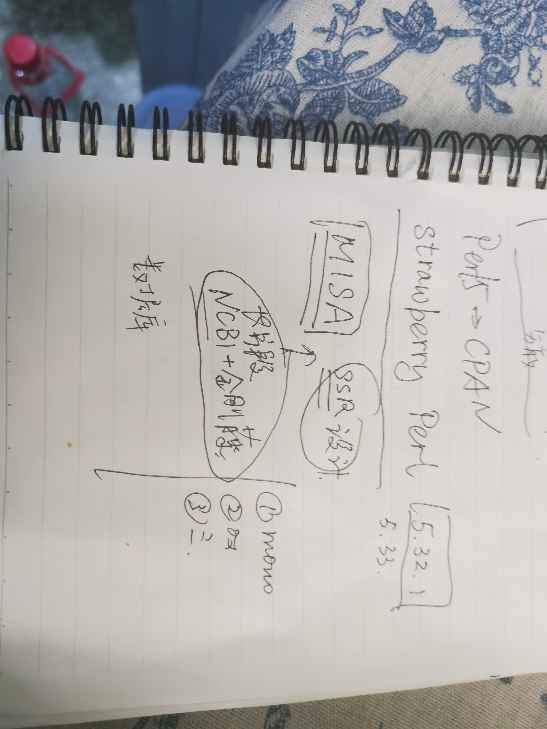 Perl → CPAN
Strawberry Perl 5.32.1
5.33.
MISA
SSR设计
NCBI + 金刚藤
数据库
① mono
②
③ 三.